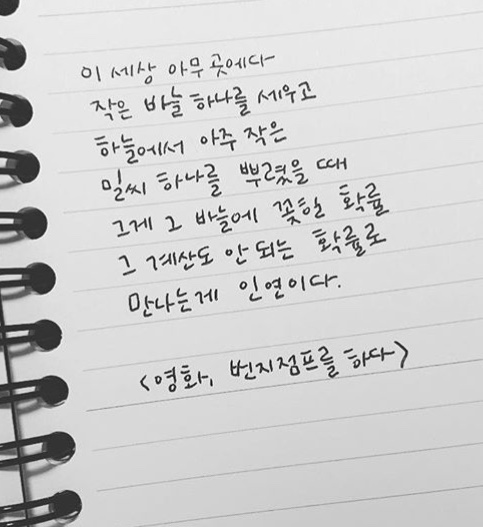 이 세상 아무 곳에다
작은 바늘 하나를 세우고
하늘에서 아주 작은
밀씨 하나를 뿌렸을 때
그게 그 바늘에 꽂힐 확률
그 계산도 안 되는 확률로
만나는게 인연이다.
<영화, 번지점프를 하다>